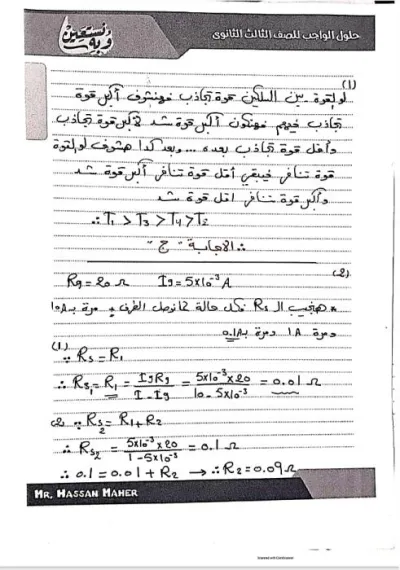 وبه نستعين
حلول الواجب للصف الثالث الثانوى
(1)
لو القوة بين السلكين قوة تجاذب هنشوف أكبر قوة
تجاذب فيهم هتكون أكبر قوة شد لأكبر قوة تجاذب
وأقل قوة تجاذب بعده ... وبعد كدا هنشوف لو القوة
قوة تنافر فيبقى أقل قوة تنافر أكبر قوة شد
وأكبر قوة تنافر أقل قوة شد
∴ T₁ > T₃ > T₄ > T₂
∴ الاجابة "ج"
(2)
Rg = 20 Ω Ig = 5x10⁻³ A
* هنجيب الـ Rs فى كل حالة مرة بـ 10A
ومرة 1A ومرة بـ 0.1A
(1) ∵ Rs = R₁
∴ Rs₁ = R₁ = IgRg / I - Ig = 5x10⁻³ x 20 / 10 - 5x10⁻³ = 0.01 Ω
(2) ∵ Rs₂ = R₁ + R₂
∴ Rs₂ = 5x10⁻³ x 20 / 1 - 5x10⁻³ = 0.1 Ω
∴ 0.1 = 0.01 + R₂ → ∴ R₂ = 0.09 Ω
MR. HASSAN MAHER
Scanned with CamScanner